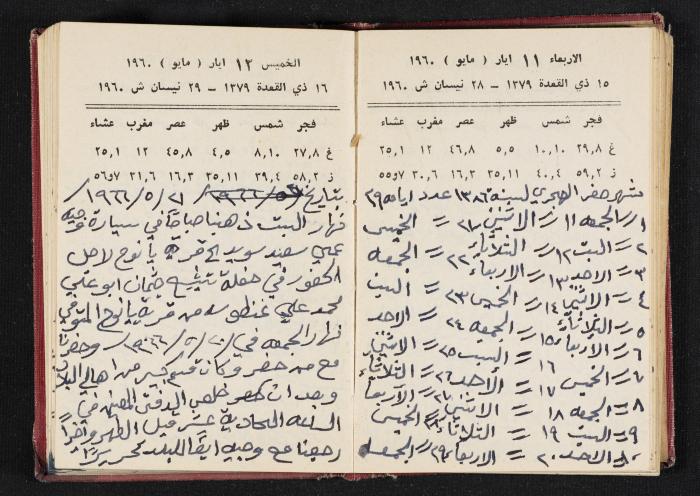 الاربعاء ١١ ايار ( مايو ) ١٩٦٠
١٥ ذي القعدة ١٣٧٩ – ٢٨ نيسان ش ١٩٦٠
فجر شمس ظهر عصر مغرب عشاء
غ ٢٩,٨ ١٠,١٠ ٥,٥ ٤٦,٨ ١٢ ٢٥,١
ز ٥٩,٢ ٤٠,٤ ٣٥,١١ ١٦,٣ ٣٠,٦ ٥٥و٧
شهر صفر الهجري لسنة ١٣٨٦ عدد ايامه ٢٩
١ = الجمعه ١١ = الاثنين ٢١ = الخميس
٢ = السبت ١٢ = الثلاثاء ٢٢ = الجمعه
٣ = الاحد ١٣ = الاربعاء ٢٣ = السبت
٤ = الاثنين ١٤ = الخميس ٢٤ = الاحد
٥ = الثلاثاء ١٥ = الجمعه ٢٥ = الاثنين
٦ = الاربعاء ١٦ = السبت ٢٦ = الثلاثاء
٧ = الخميس ١٧ = الاحد ٢٧ = الاربعاء
٨ = الجمعه ١٨ = الاثنين ٢٨ = الخميس
٩ = السبت ١٩ = الثلاثاء ٢٩ = الجمعه
١٠ = الاحد ٢٠ = الاربعاء
الخميس ١٢ ايار ( مايو ) ١٩٦٠
١٦ ذي القعدة ١٣٧٩ – ٢٩ نيسان ش ١٩٦٠
فجر شمس ظهر عصر مغرب عشاء
غ ٢٧,٨ ٨,١٠ ٤,٥ ٤٥,٨ ١٢ ٢٥,١
ز ٥٨,٢ ٣٩,٤ ٣٥,١١ ١٦,٣ ٣١,٦ ٥٦و٧
بتاريخ ٢١/٥/١٩٦٦
نهار السبت ذهبنا صباحاً في سيارة وجيه
علي سعيد سويد الى قرية يانوح لاجل
الحضور في حفلة تشييع جثمان ابو علي
محمد علي من قرية يانوح المتوفي
نهار الجمعه في ٢٠/٥/١٩٦٦ وحضرنا
مع من حضر وكان قسم كبير من اهالي البلاد
وبعد ان
الساعه الحادية عشر قبل الظهر واخيراً
رجعنا مع وجيه ايضاً للبلد تحريراً